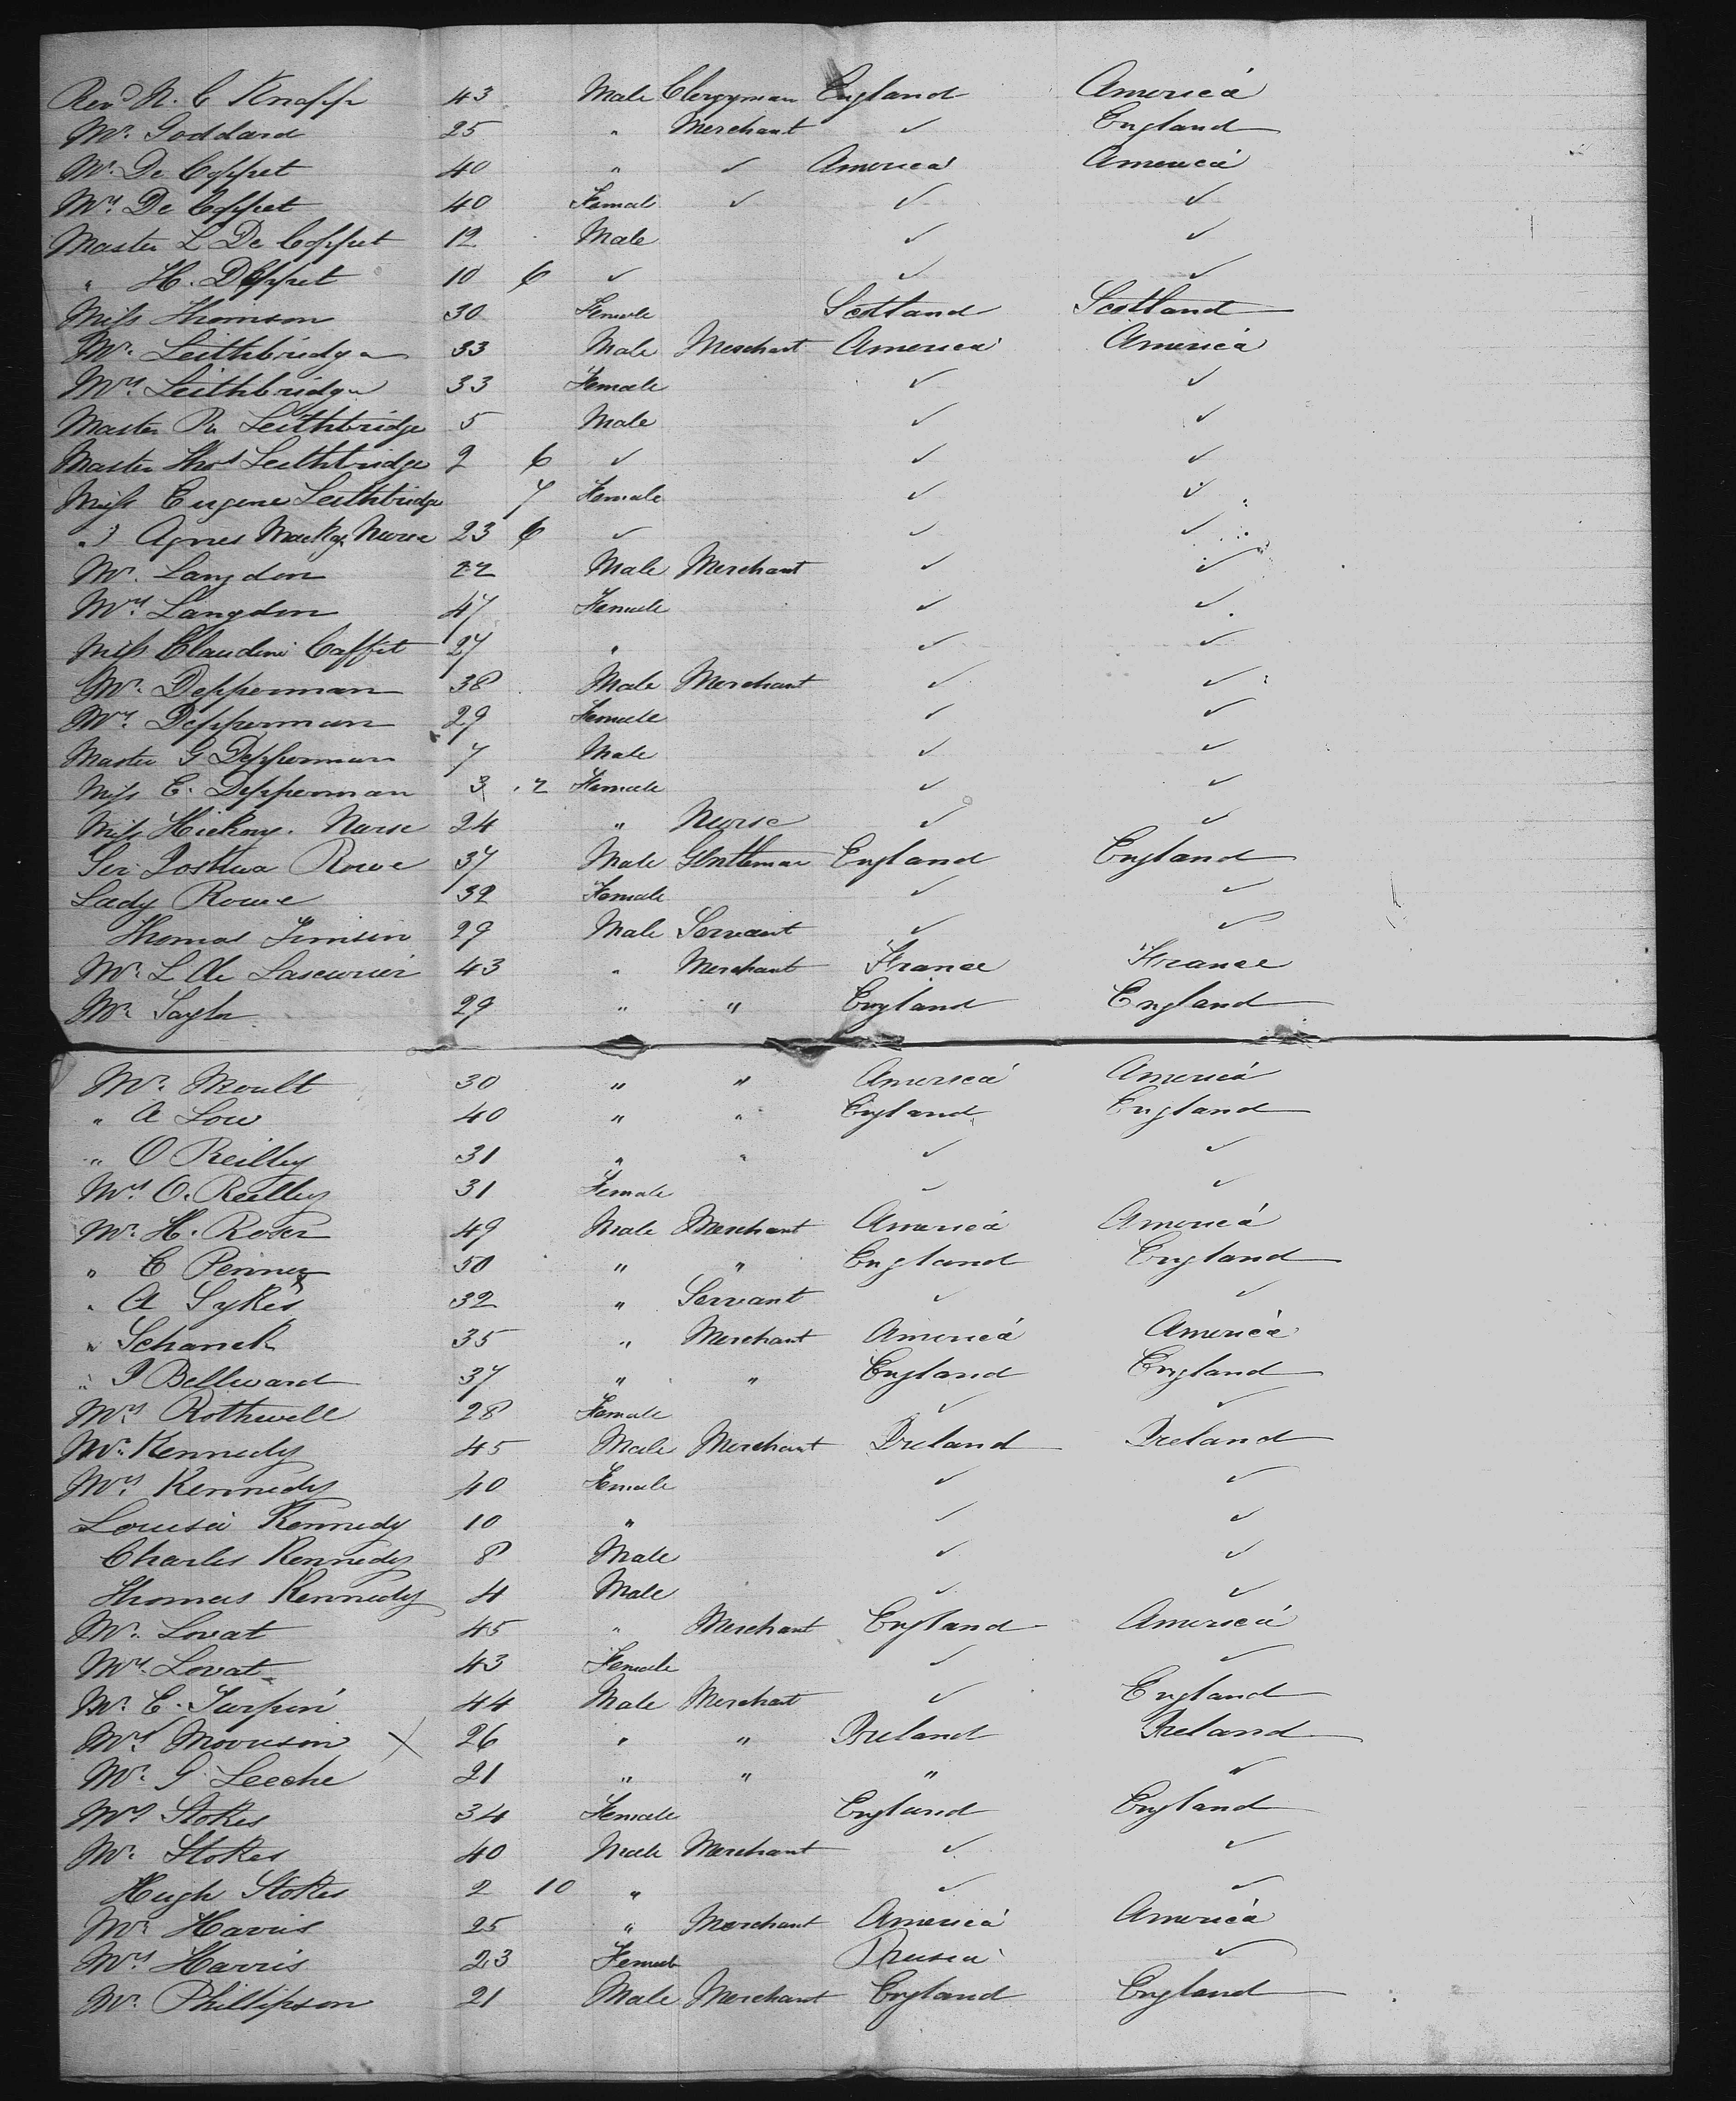 Revd N. C Knapp 43 Male Clergyman England America
Mr. Goddard 25 " Merchant ✓ England
Mr. De Coppet 40 " ✓ America America
Mrs. De Coppet 40 Female ✓ ✓ ✓
Master L De Coppet 12 Male ✓ ✓
" H. D Coppet 10 6 ✓ ✓ ✓
Miss Thomson 30 Female Scotland Scotland
Mr. Leithbridge 33 Male Merchant America America
Mrs. Leithbridge 33 Female ✓ ✓
Master Leithbridge 5 Male ✓ ✓
Master Thos Leithbridge 2 6 ✓ ✓ ✓
Miss Eugene Leithbridge 7 Female ✓ ✓
" Agnes Nurse 23 6 ✓ ✓ ✓
Mr. Langdon 22 Male Merchant ✓ ✓
Mrs Langdon 47 Female ✓ ✓
Miss Claudine Caffit 27 " ✓ ✓
Mr. Depperman 38 Male Merchant ✓ ✓
Mrs. Depperman 29 Female ✓ ✓
Master G Depperman 7 Male ✓ ✓
Miss E. Depperman 3 2 Female ✓ ✓
Miss Hickey. Nurse 24 " Nurse ✓ ✓
Sir Joshua Rowe 37 Male Gentleman England England
Lady Rowe 32 Female ✓ ✓
Thomas 29 Male Servant ✓ ✓
Mr. L 43 " Merchant France France
Mr. Taylor 29 " " England England
Mr. Moult 30 " " America America
" A Low 40 " " England England
" O Reilley 31 " " ✓ ✓
Mrs O. Reilley 31 Female ✓ ✓
Mr. H. Roser 49 Male Merchant America America
" C Penney 50 " " England England
" A Sykes 32 " Servant ✓ ✓
" Schanck 35 " Merchant America America
" J Bellward 37 " " England England
Mrs Rothwell 28 Female ✓ ✓
Mr. Kennedy 45 Male Merchant Ireland Ireland
Mrs. Kennedy 40 Female ✓ ✓
Louisa Kennedy 10 " ✓ ✓
Charles Kennedy 8 Male ✓ ✓
Thomas Kennedy 4 Male ✓ ✓
Mr. Lovat 45 " Merchant England America
Mrs. Lovat 43 Female ✓ ✓
Mr. C. Turpin 44 Male Merchant ✓ England
Mrs Morrison X 26 " " Ireland Ireland
Mr. G Leeche 21 " " " "
Mrs Stokes 34 Female England England
Mr. Stokes 40 Male Merchant ✓ ✓
Hugh Stokes 2 10 " ✓ ✓
Mr. Harris 25 " Merchant America America
Mrs. Harris 23 Female ✓
Mr. Phillipson 21 Male Merchant England England